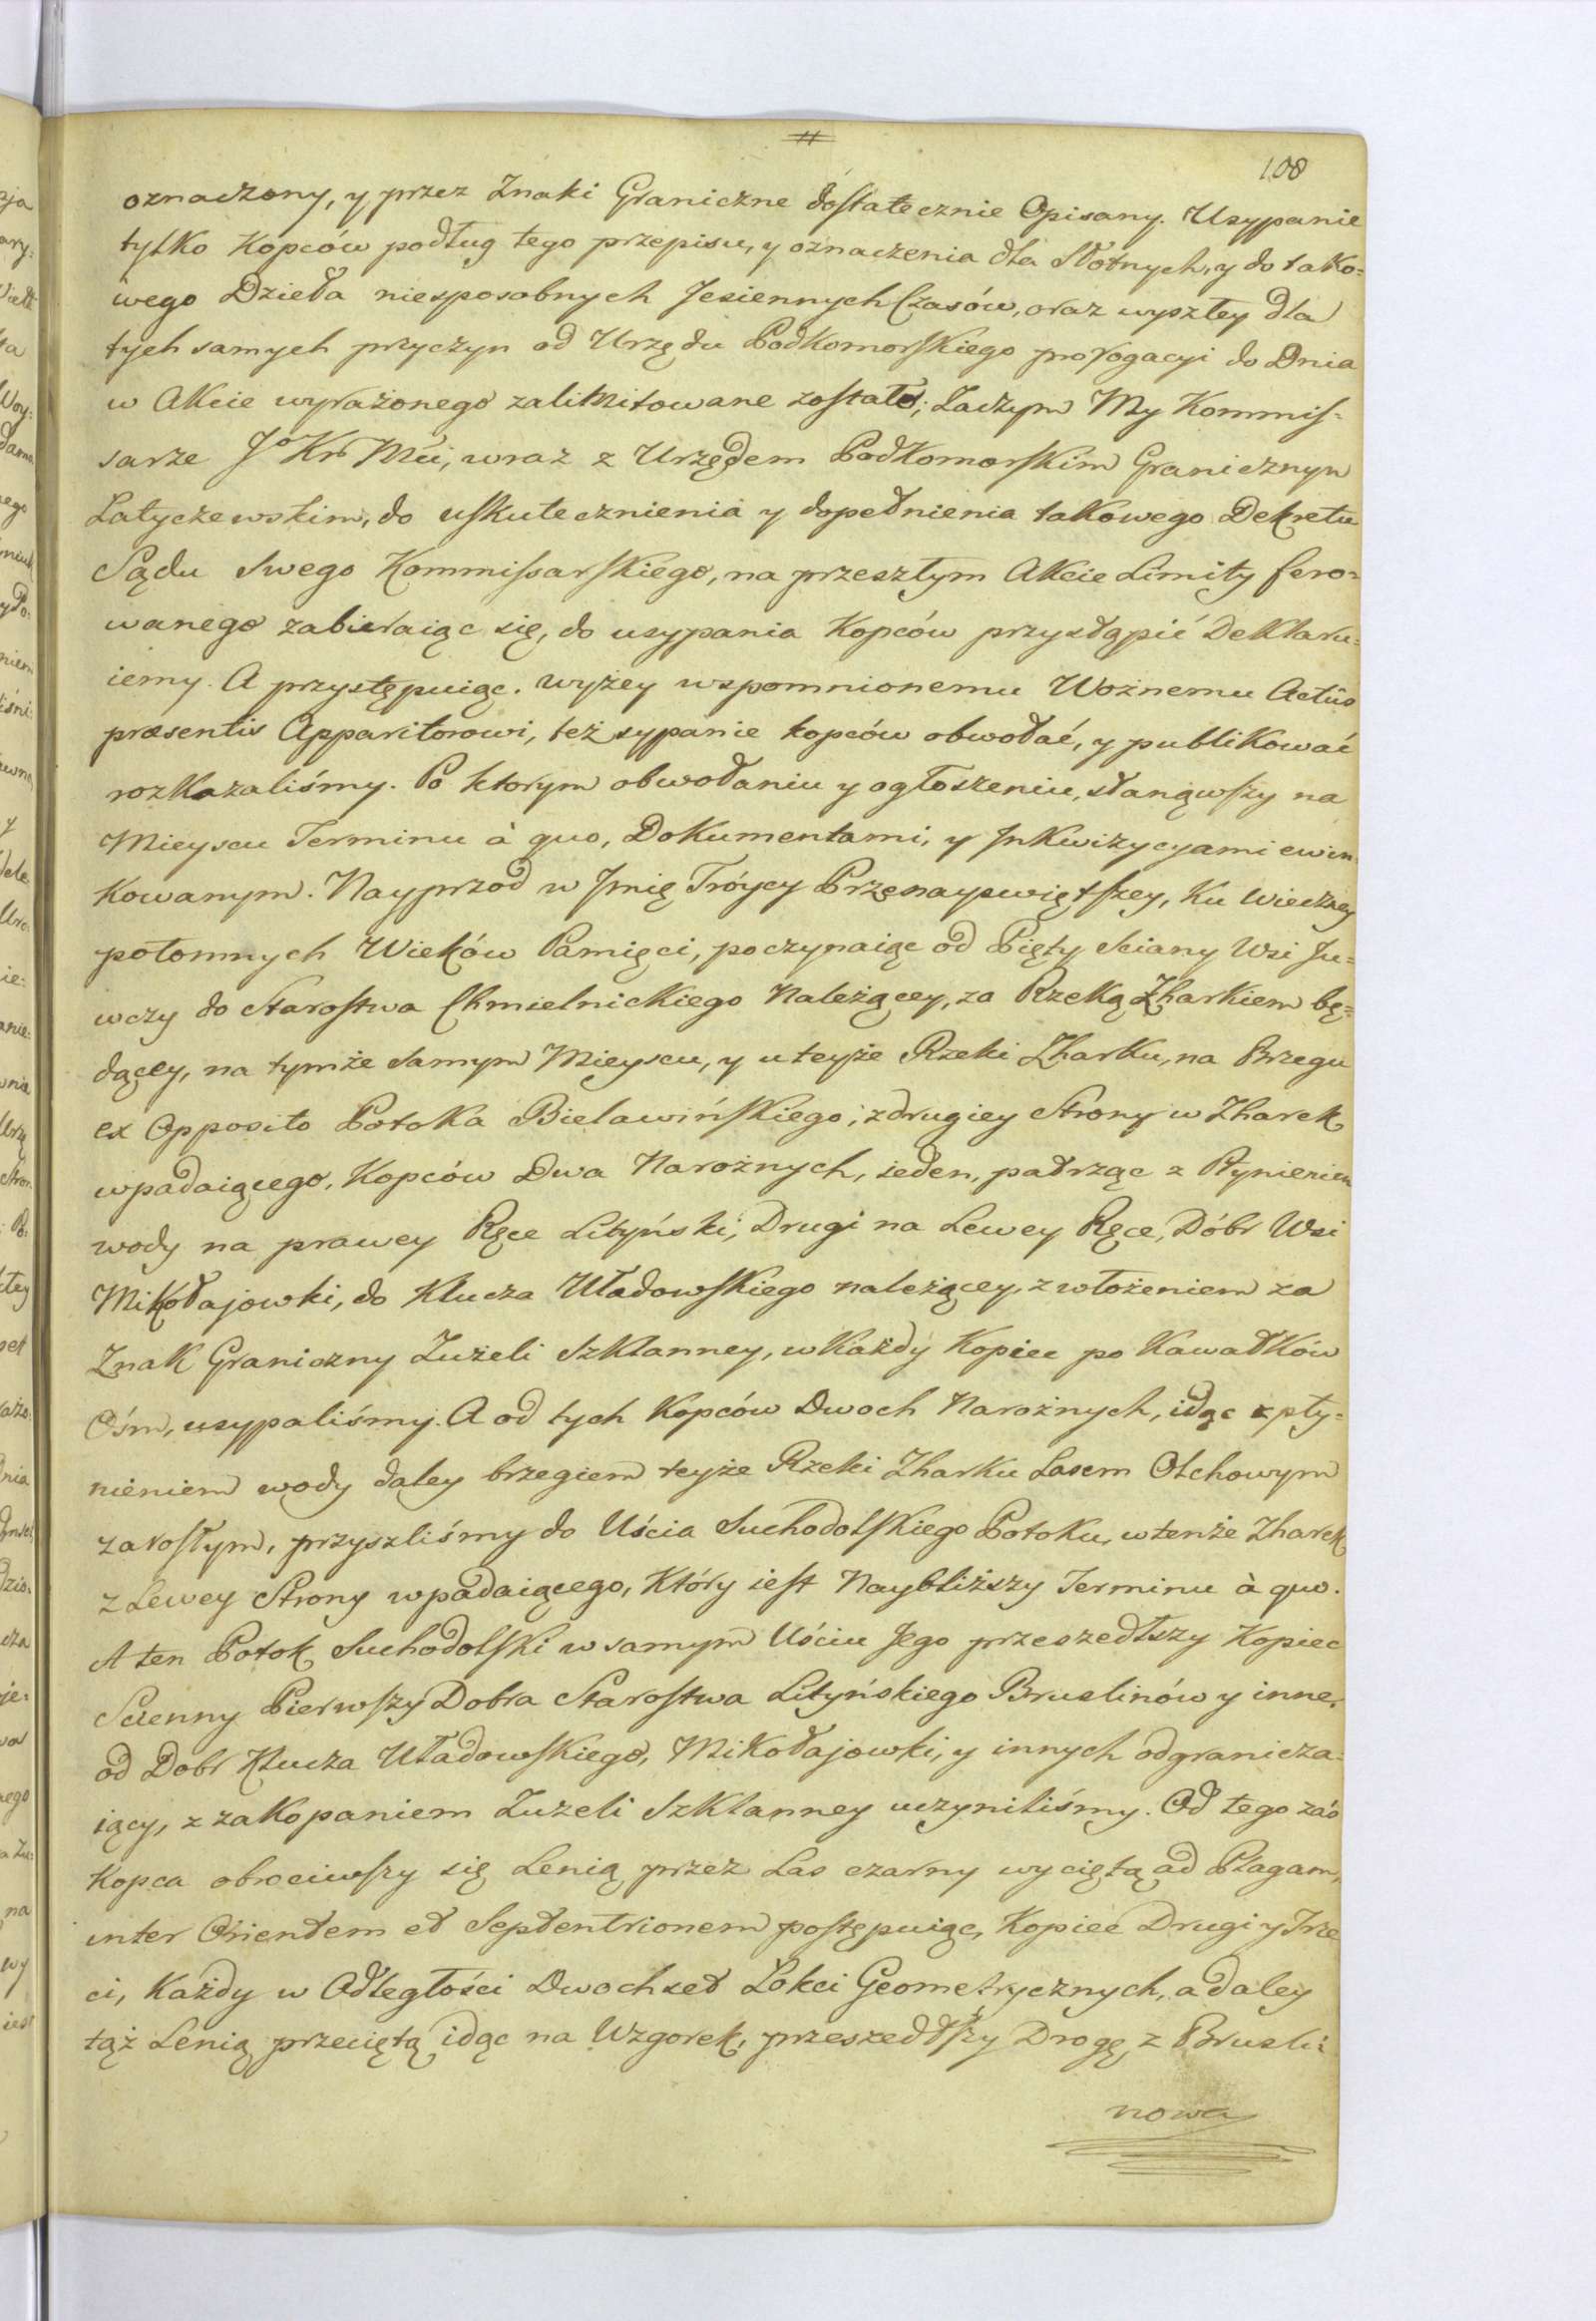 108
oznaczony, y przez Znaki Graniczne dostatecznie Opisany. Usypanie
tylko Kopców podług tego przepisu, y oznaczenia dla Słotnych, y do tako=
wego Dzieła niesposobnych Jesiennych Czasów, oraz wyszłey dla
tych samych przyczyn od Urzędu Podkomorskiego prorogacyi do Dnia
w Akcie wyrażonego zalimitowane zostało; Zaczym My Kommis=
sarze Jo Kr Mci, wraz z Urzędem Podkomorskim Granicznym
Latyczewskim, do uskutecznienia y dopełnienia takowego Dekretu
Sądu Swego Kommissarskiego, na przeszłym Akcie Limity fero=
wanego zabieraiąc się, do usypania Kopców przystąpić Deklaru=
iemy. A przystępuiąc. wyżey wspomnionemu Woznemu Actûs
præsentis Apparitorowi, też sypanie kopców obwołać, y publikować
rozkazaliśmy. Po ktorym obwołaniu y ogłoszeniu, stanąwszy na
Mieyscu Terminu à quo, Dokumentami, y Jnkwizycyami ewin=
kowanym. Nayprzod w Jmię Tróycy Przenayswiętszey, Ku wieczney
potomnych Wieków Pamięci, poczynaiąc od Pięty Sciany Wsi Ju=
wczy do Starostwa Chmielnickiego Należącey, za Rzeką Zharkiem bę=
dącey, na tymże Samym Mieyscu, y u teyże Rzeki Zharku, na Brzegu
ex Opposito Potoka Bielawińskiego, z drugiey Strony w Zharek
wpadaiącego, Kopców Dwa Narożnych, ieden, patrząc z Płynieniem
wody na prawey Ręce Lityński, Drugi na Lewey Ręce, Dóbr Wsi
Mikołajowki, do Klucza Uładowskiego należącey, z włożeniem za
Znak Graniczny Zużeli Szklanney, w Każdy Kopiec po Kawałków
Ośm, usypaliśmy. A od tych Kopców Dwoch Narożnych, idąc z pły=
nieniem wody daley brzegiem teyże Rzeki Zharku Lasem Olchowym
zarosłym, przyszliśmy do Uścia Suchodolskiego Potoku, w tenże Zharek
z Lewey Strony wpadaiącego, Który iest Naybliższy Terminu à quo.
A ten Potok Suchodolski w samym Uściu Jego przeszedłszy Kopiec
Scienny Pierwszy Dobra Starostwa Lityńskiego Bruslinów y inne,
od Dobr Klucza Uładowskiego, Mikołajowki, y innych odgranicza=
iący, z zakopaniem Zużeli Szklanney uczyniliśmy. Od tego zaś
Kopca obrociwszy się Lenią przez Las czarny wyciętą ad Plagam,
inter Orientem et Septentrionem postępuiąc, Kopiec Drugi y Trze
ci, Każdy w Odległości Dwochset Łokci Geometrycznych, a daley
tąż Lenią przeciętą idąc na Wzgorek, przeszedłszy Drogę z Brusli=
nowa